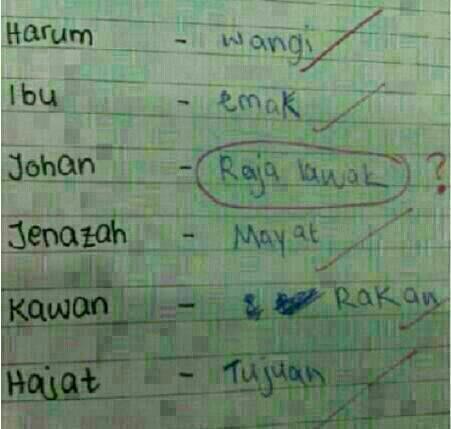 Harum - wangi
Ibu - emak
Johan - Raja lawak ?
Jenazah - Mayat
Kawan - RaKan
Hajat - Tujuan